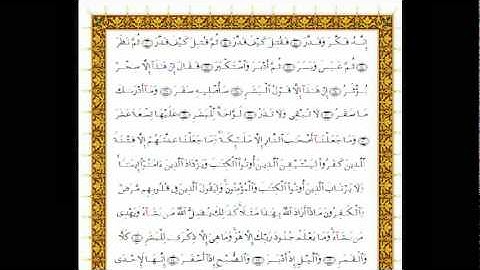 إِنَّهُ فَكَّرَ وَقَدَّرَ ۝ فَقُتِلَ كَيْفَ قَدَّرَ ۝ ثُمَّ قُتِلَ كَيْفَ قَدَّرَ ۝ ثُمَّ نَظَرَ
۝ ثُمَّ عَبَسَ وَبَسَرَ ۝ ثُمَّ أَدْبَرَ وَٱسْتَكْبَرَ ۝ فَقَالَ إِنْ هَٰذَآ إِلَّا سِحْرٌ
يُؤْثَرُ ۝ إِنْ هَٰذَآ إِلَّا قَوْلُ ٱلْبَشَرِ ۝ سَأُصْلِيهِ سَقَرَ ۝ وَمَآ أَدْرَىٰكَ
مَا سَقَرُ ۝ لَا تُبْقِى وَلَا تَذَرُ ۝ لَوَّاحَةٌ لِّلْبَشَرِ ۝ عَلَيْهَا تِسْعَةَ عَشَرَ
۝ وَمَا جَعَلْنَآ أَصْحَٰبَ ٱلنَّارِ إِلَّا مَلَٰٓئِكَةً وَمَا جَعَلْنَا عِدَّتَهُمْ إِلَّا فِتْنَةً
لِّلَّذِينَ كَفَرُوا۟ لِيَسْتَيْقِنَ ٱلَّذِينَ أُوتُوا۟ ٱلْكِتَٰبَ وَيَزْدَادَ ٱلَّذِينَ ءَامَنُوٓا۟ إِيمَٰنًا
وَلَا يَرْتَابَ ٱلَّذِينَ أُوتُوا۟ ٱلْكِتَٰبَ وَٱلْمُؤْمِنُونَ وَلِيَقُولَ ٱلَّذِينَ فِى قُلُوبِهِم مَّرَضٌ
وَٱلْكَٰفِرُونَ مَاذَآ أَرَادَ ٱللَّهُ بِهَٰذَا مَثَلًا كَذَٰلِكَ يُضِلُّ ٱللَّهُ مَن يَشَآءُ وَيَهْدِى
مَن يَشَآءُ وَمَا يَعْلَمُ جُنُودَ رَبِّكَ إِلَّا هُوَ وَمَا هِىَ إِلَّا ذِكْرَىٰ لِلْبَشَرِ ۝ كَلَّا
وَٱلْقَمَرِ ۝ وَٱلَّيْلِ إِذْ أَدْبَرَ ۝ وَٱلصُّبْحِ إِذَآ أَسْفَرَ ۝ إِنَّهَا لَإِحْدَى